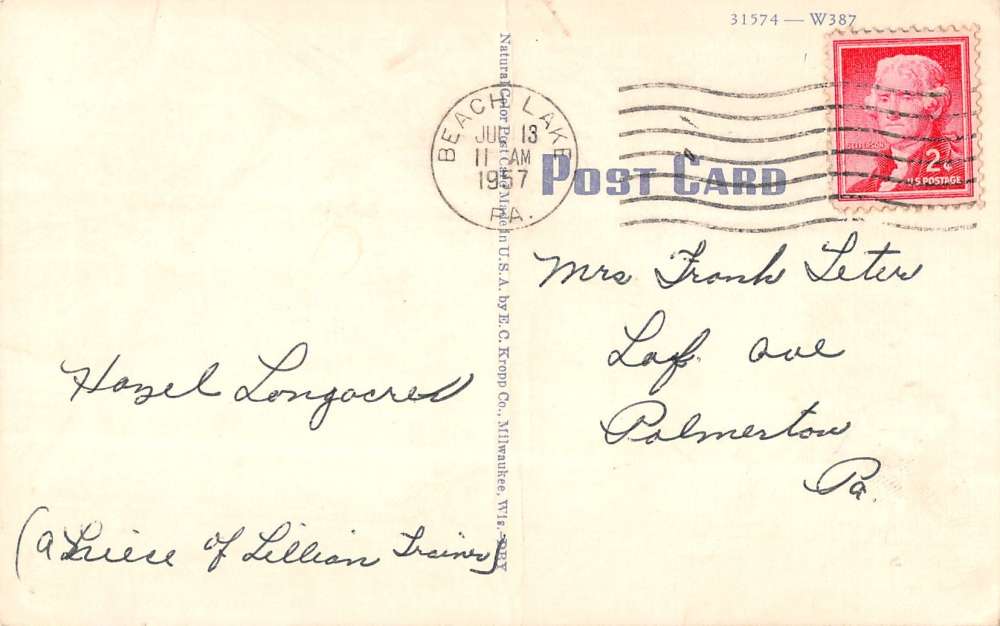 31574 — W387
BEACH LAKE
JUL 13
11 AM
1957
PA.
POST CARD
JEFFERSON
2¢
U.S. POSTAGE
Natural Color Post Card Made in U.S.A. by E. C. Kropp Co., Milwaukee, Wis.
Mrs Frank
Laf. ave
Palmerton
Pa.
Hazel Longacre
(a of Lillian Trainer)